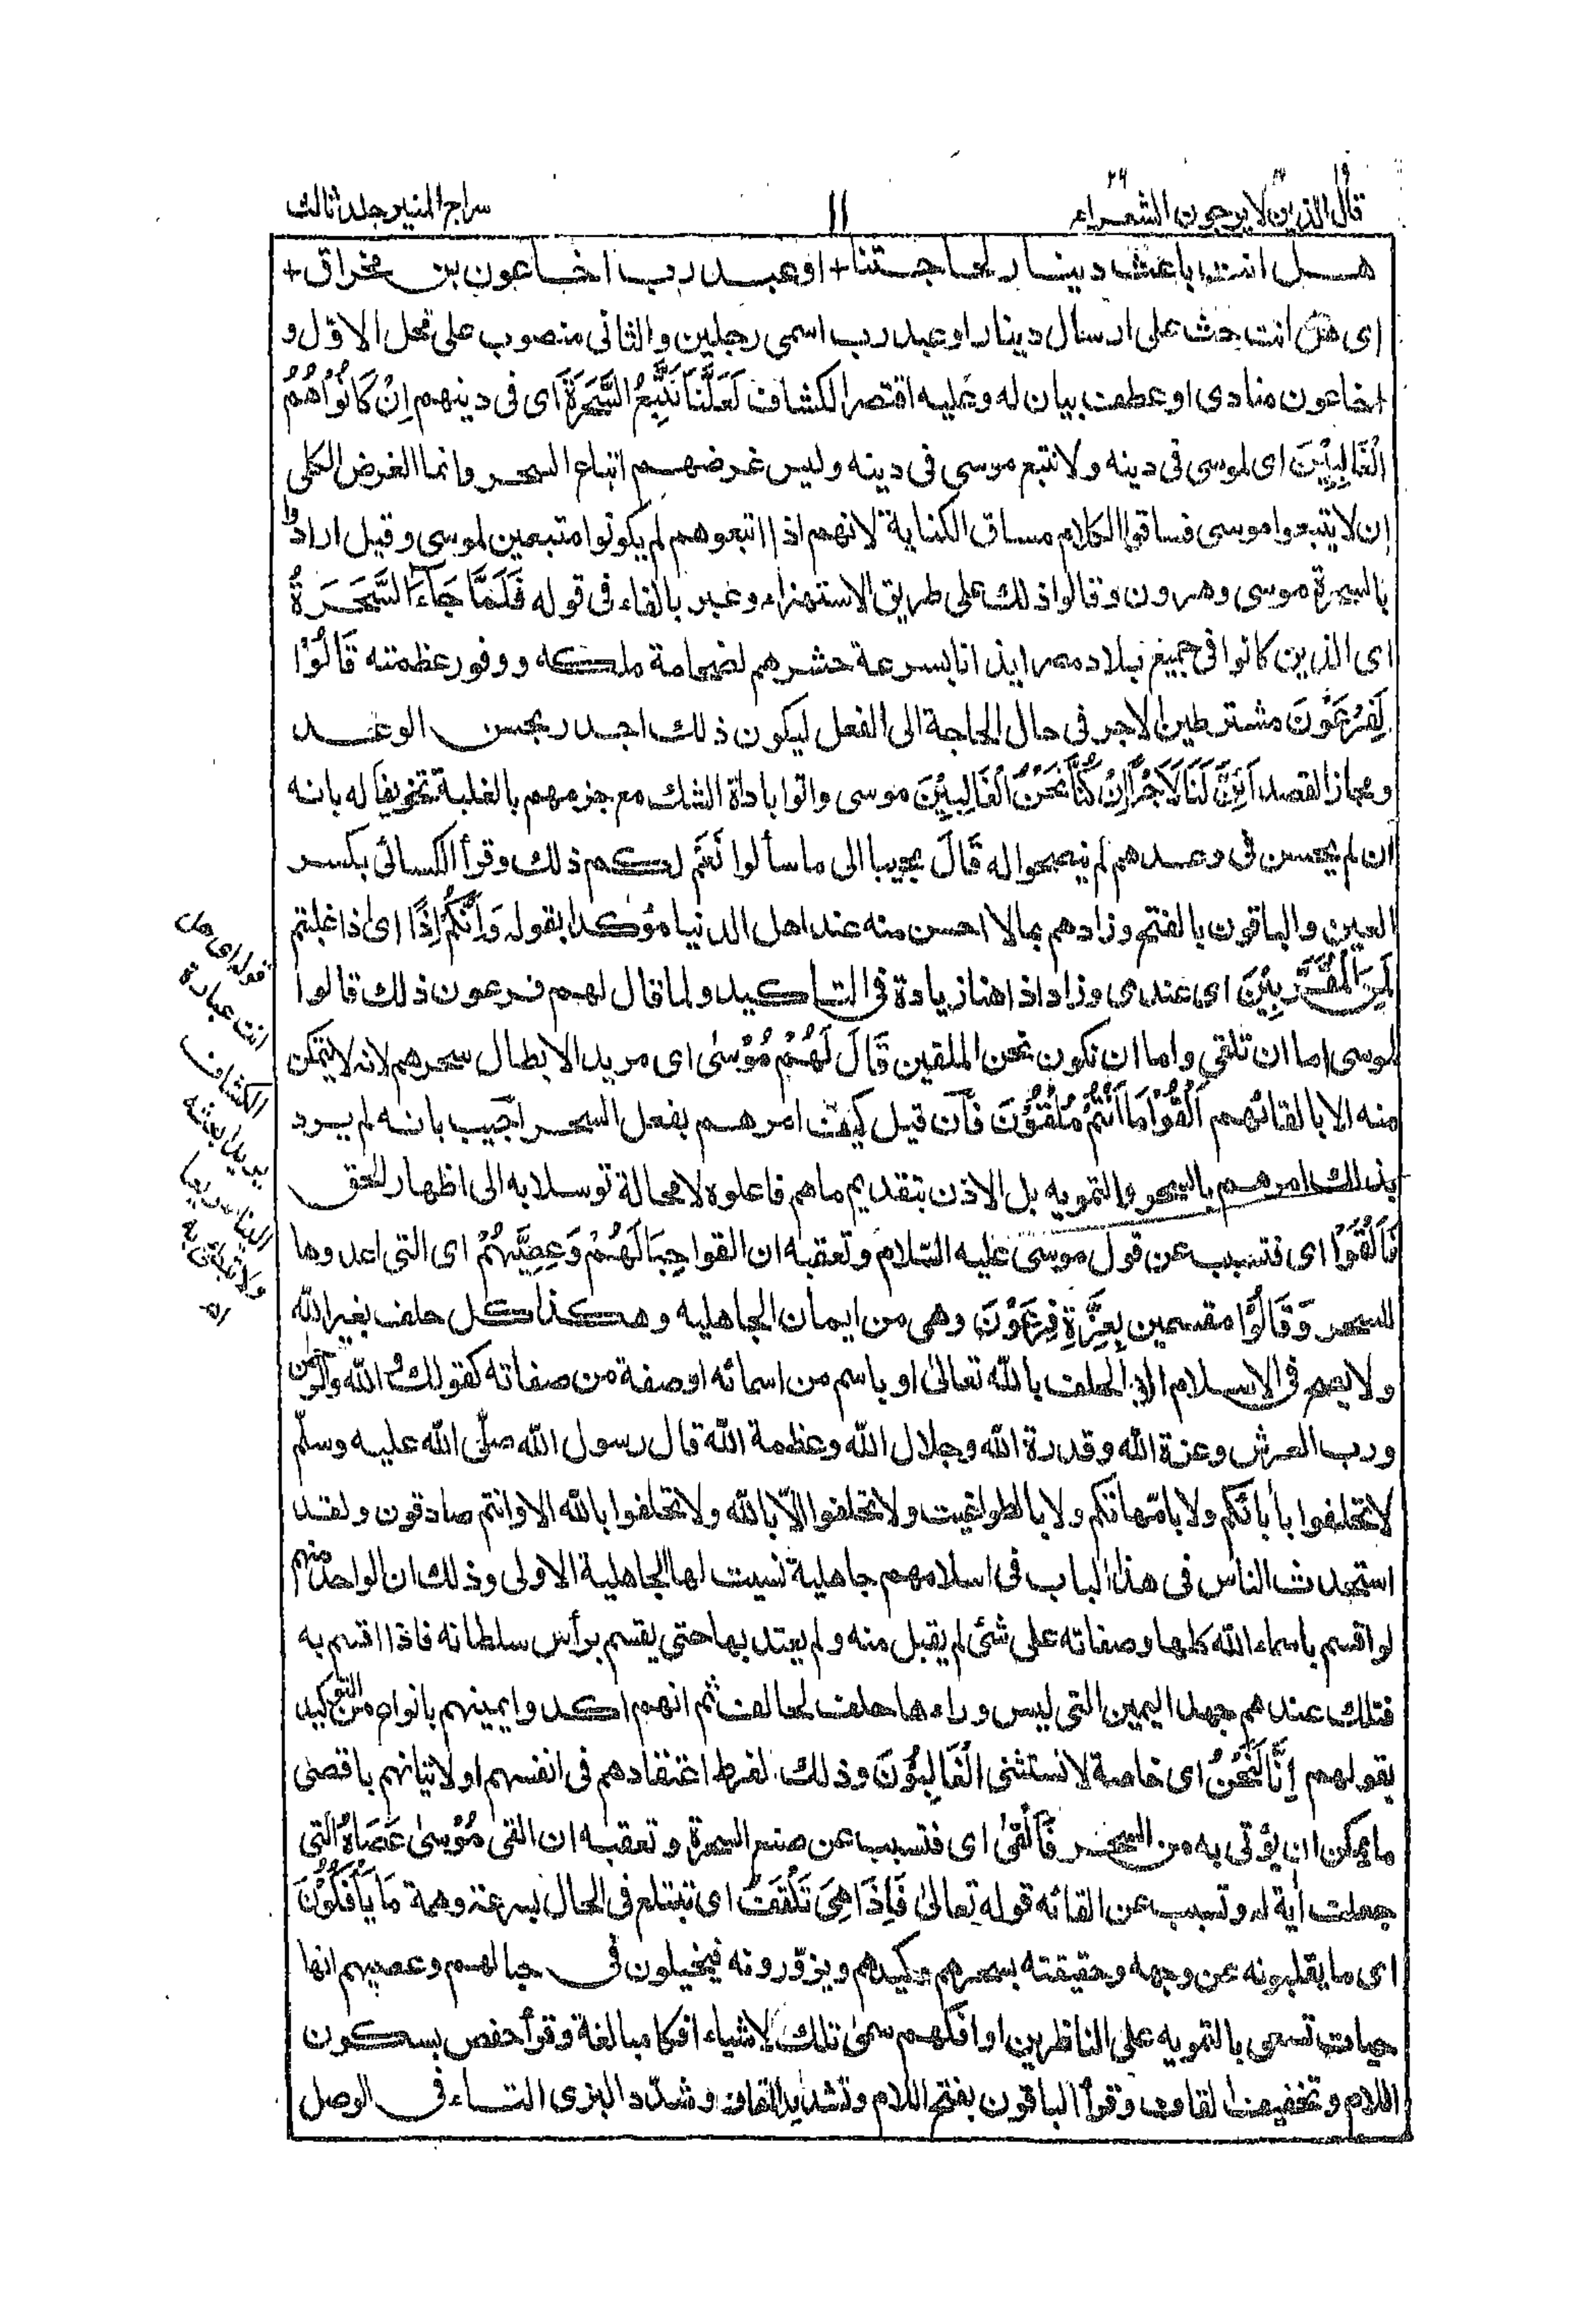 قال الذين لا يرجون الشعراء ٢٦
١١
سراج المنير جلد ثالث
هل انت باعث دينار لحاجتنا + او عبد رب اخا عون بن مخراق +
اى هل انت حث على ارسال دينار او عبد رب اسمى رجلين والثانى منصوب على محل الاوّل و
اخا عون منادى او عطف بيان له وعليه اقتصر الكشاف لَعَلَّنَا نَتَّبِعُ السَّحَرَةَ اى فى دينهم اِنْ كَانُوْا هُمُ
الْغَالِبِيْنَ اى لموسى فى دينه ولا نتبع موسى فى دينه وليس غرضهم اتباع السحر وانما الغرض الكلى
ان لا يتبعوا موسى فساقوا الكلام مساق الكناية لانهم اذا اتبعوهم لم يكونوا متبعين لموسى وقيل ارادوا
بالسحرة موسى وهرون وقالوا ذلك على طريق الاستهزاء وعبر بالفاء فى قوله فَلَمَّا جَآءَ السَّحَرَةُ
اى الذين كانوا فى جميع بلاد مصر ايذانا بسرعة حشرهم لضخامة ملكه ووفور عظمته قَالُوْا
لِفِرْعَوْنَ مشترطين الاجر فى حال الحاجة الى الفعل ليكون ذلك اجدر بحسن الوعد
ومجاز القصد اَئِنَّ لَنَا لَاَجْرًا اِنْ كُنَّا نَحْنُ الْغَالِبِيْنَ موسى واتوا باداة الشك مع جزمهم بالغلبة تخويفا له بانه
ان لم يحسن فى وعدهم لم ينصحوا له قَالَ مجيبا الى ما سألوا نَعَمْ لكم ذلك وقرأ الكسائى بكسر
العين والباقون بالفتح وزادهم بما لا احسن منه عند اهل الدنيا مؤكدا بقوله وَاِنَّكُمْ اِذًا اى اذا غلبتم
لَمِنَ الْمُقَرَّبِيْنَ اى عندى وزاد اذا هنا زيادة فى التاكيد ولما قال لهم فرعون ذلك قالوا
لموسى اما ان تلقى واما ان نكون نحن الملقين قَالَ لَهُمْ مُوْسٰى اى مريد الابطال سحرهم لانه لا يتمكن
منه الا بالقائهم اَلْقُوْا مَا اَنْتُمْ مُلْقُوْنَ فآن قيل كيف امرهم بفعل السحر اجيب بانه لم يرد
بذلك امرهم بالسحر والتمويه بل الاذن بتقديم ما هم فاعلوه لا محالة توسلا به الى اظهار الحق
فَاَلْقَوْا اى فتسبب عن قول موسى عليه السّلام وتعقبه ان القوا حِبَالَهُمْ وَعِصِيَّهُمْ اى التى اعدوها
للسحر وَقَالُوْا مقسمين بِعِزَّةِ فِرْعَوْنَ وهى من ايمان الجاهليه وهكذا كل حلف بغير الله
ولا يصح فى الاسلام الا الحلف بالله تعالىٰ او باسم من اسمائه او صفة من صفاته كقولك والله والرحمن
ورب العرش وعزة الله وقدرة الله وجلال الله وعظمة الله قال رسول الله صلّى الله عليه وسلّم
لا تحلفوا بأبائكم ولا بامّهاتكم ولا بالطواغيت ولا تحلفوا الّا بالله ولا تحلفوا بالله الا وانتم صادقون ولقد
استحدث الناس فى هذا الباب فى اسلامهم جاهلية نسيت لها الجاهلية الاولى وذلك ان الواحد منهم
لو اقسم باسماء الله كلها وصفاته على شئ لم يقبل منه ولم يعتد بها حتى يقسم برأس سلطانه فاذا اقسم به
فتلك عندهم جهد اليمين التى ليس وراءها حلف لحالف ثم انهم اكدوا يمينهم بانواع من التوكيد
بقولهم اِنَّا لَنَحْنُ اى خاصة لا نستثنى الْغَالِبُوْنَ وذلك لفرط اعتقادهم فى انفسهم او لاتيانهم باقصى
ما يمكن ان يؤتى به من السحر فَاَلْقٰى اى فتسبب عن صنع السحرة وتعقبه ان القى مُوْسٰى عَصَاهُ التى
جعلت أية له وتسبب عن القائه قوله تعالىٰ فَاِذَا هِىَ تَلْقَفُ اى تبتلع فى الحال بسرعة وهمة مَا يَأْفِكُوْنَ
اى ما يقلبونه عن وجهه وحقيقته بسحرهم وكيدهم ويزوّرونه فيخيلون فى حبالهم وعصيهم انها
حيات تسعى بالتمويه على الناظرين او افكهم سمى تلك الاشياء افكا مبالغة وقرأ حفص بسكون
اللام وتخفيف القاف وقرأ الباقون بفتح اللام وتشديد القاف وشدّد البزى التاء فى الوصل
قوله اى هل
انت عبارة
الكشاف
يريد ابعثه
الينا سريعا
ولا تبطئ به
اھ